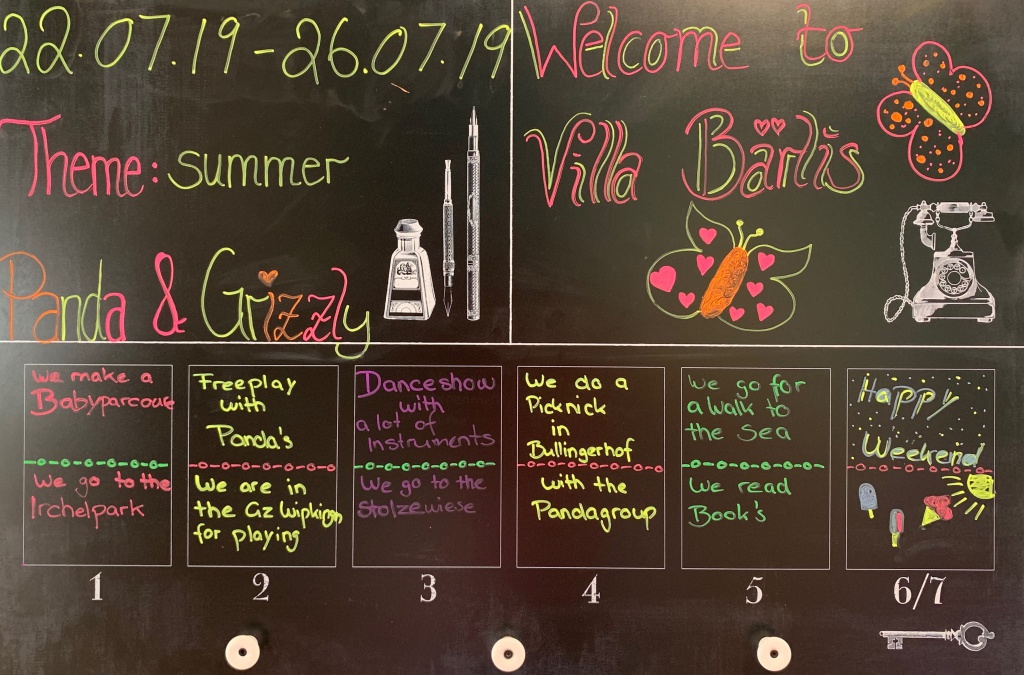 22.07.19-26.07.19
Theme: summer
Panda & Grizzly
Welcome to
Villa Bärlis
We make a
Babyparcour
We go to the
Irchelpark
1
Freeplay
with
Panda's
We are in
the Gz Wipkingn
for playing
2
Danceshow
with
a lot of
Instruments
We go to the
Stolzewiese
3
We do a
Picknick
in
Bullingerhof
with the
Pandagroup
4
We go for
a walk to
the Sea
We read
Book's
5
Happy
Weekend
6/7